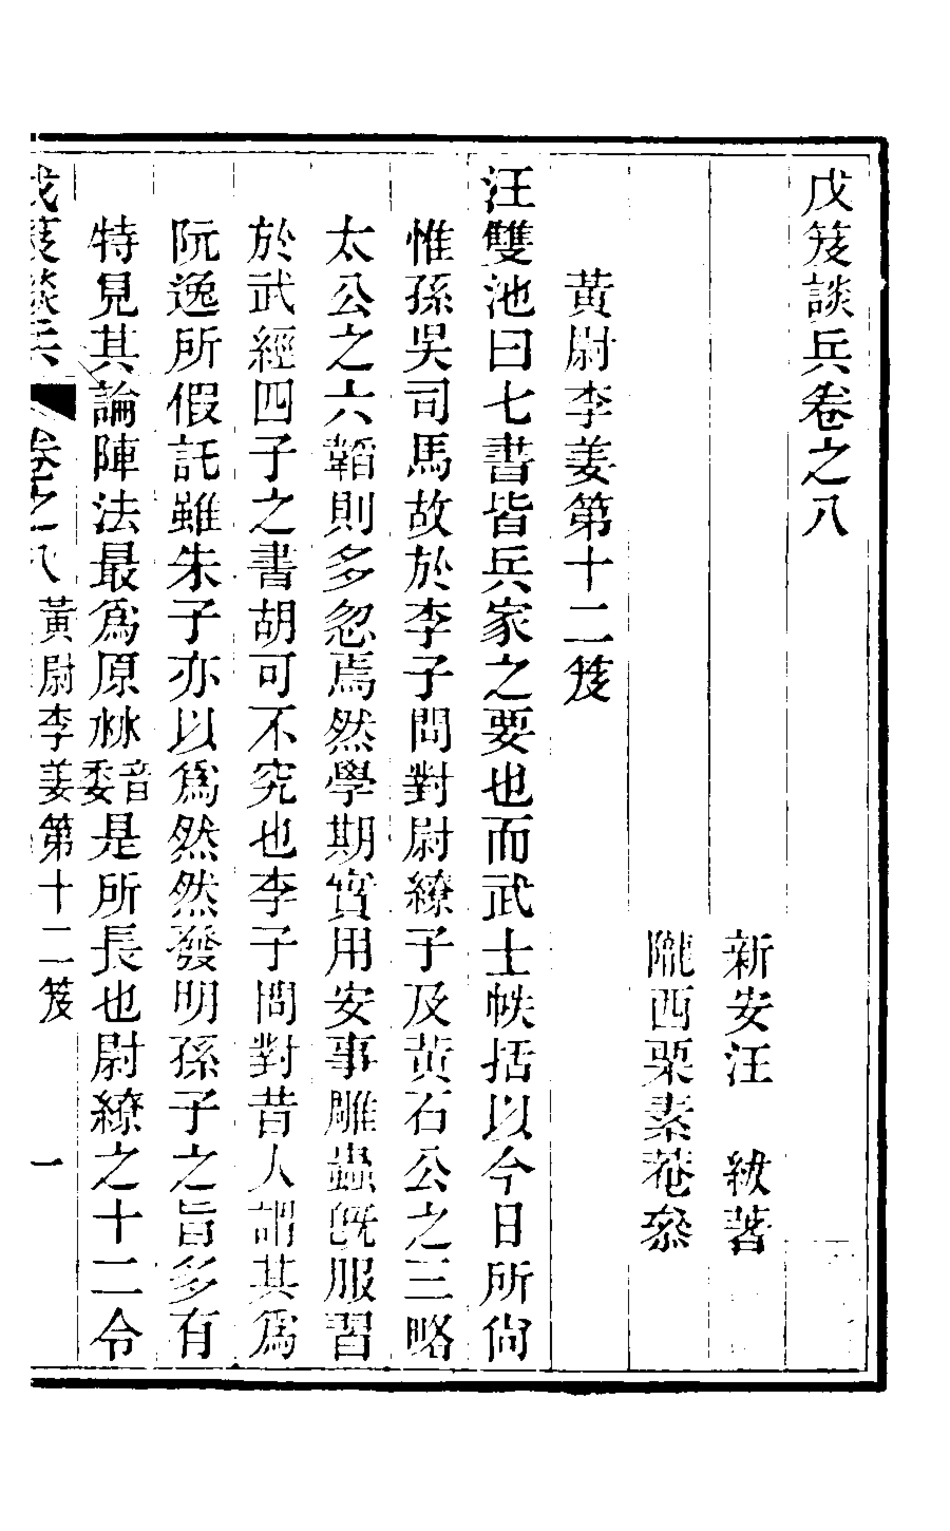 戊笈談兵卷之八
新安汪 紱著
隴西栗素菴叅
黃尉李姜第十二笈
汪雙池曰七書皆兵家之要也而武士帙括以今日所尙
惟孫吳司馬故於李子問對尉繚子及黃石公之三略
太公之六韜則多忽焉然學期實用安事雕蟲旣服習
於武經四子之書胡可不究也李子問對昔人謂其爲
阮逸所假託雖朱子亦以爲然然發明孫子之旨多有
特見其論陣法最爲原沝音委是所長也尉繚之十二令
戊笈談兵 卷之八 黃尉李姜第十二笈 一